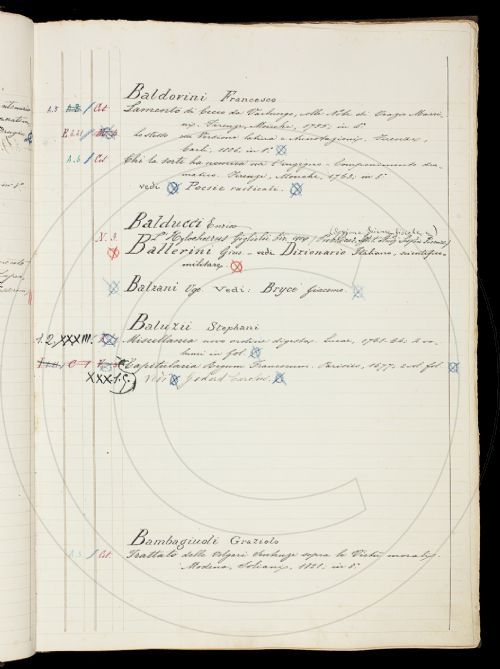 Baldovini Francesco
A.8 A.8 / Cet Lamento di Cecco da Varlungo, colle Note di Orazio Marri-
ni. Firenze, Moucke, 1755, in 8°
lo stesso con Versione latina e Annotazioni. Firenze
Carli, 1806, in 8°
A.6 / Cet Chi la sorte ha nemica usi l'ingegno - Componimento dra-
matico. Firenze, Moucke, 1763, in 8°
vedi Poesie rusticale.
Balducci Enrico
N. 3. L'Hylochoerus
Ballerini Gius - vedi Dizionario Italiano, scientifico
militare.
Balzani Ugo Vedi: Bryce Giacomo.
Baluzii Stephani
1.2, XXXIII. Miscellanea novo ordine digesta. Lucae, 1761-64. 4 vo-
lumi in fol.
Capitularia Regum Francorum. Parisiis, 1677, 2 vol. fol
XXX.1.5. Vedi
Bambagiuoli Graziolo
A.5 / Cet. Trattato delle Volgari Sentenze sopra le Virtù morali.
Modena, Soliani, 1821, in 8°